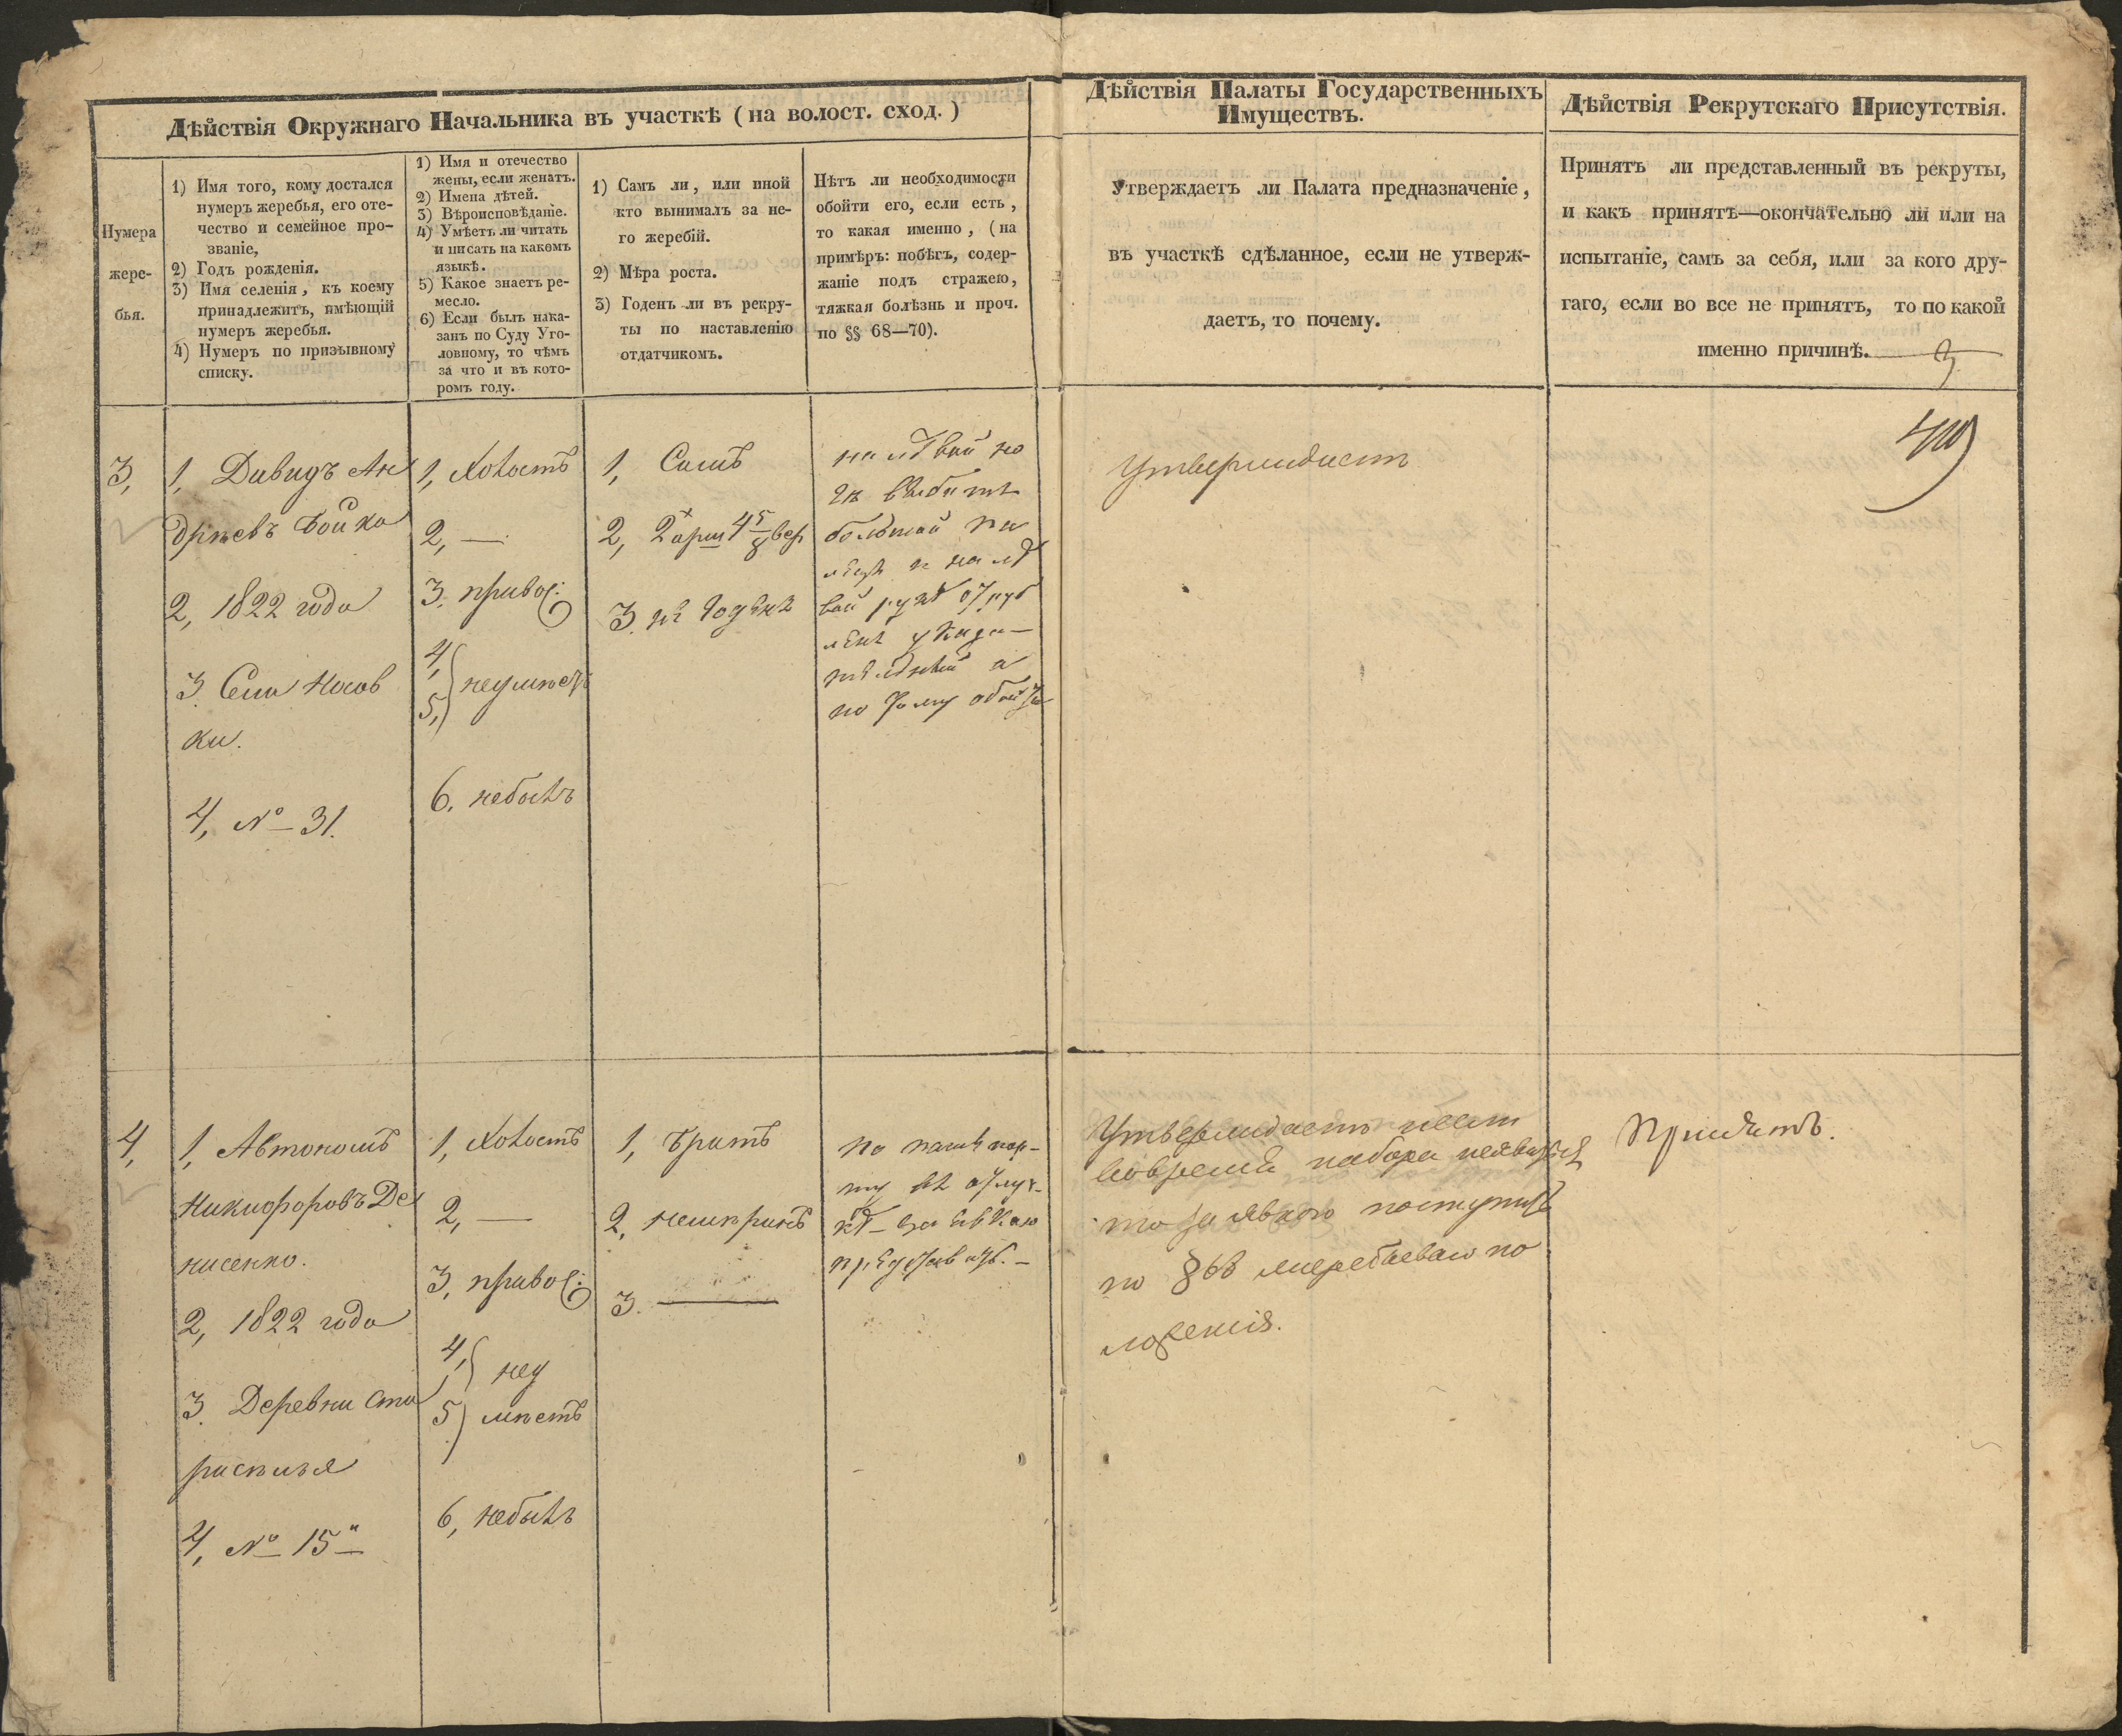 Дѣйствія Окружнаго Начальника въ участкѣ (на волост. сход.)
Нумера
жере-
бья.
1) Имя того, кому достался
нумеръ жеребья, его оте-
чество и семейное про-
званіе,
2) Годъ рожденія.
3) Имя селенія, къ коему
принадлежитъ, имѣющій
нумеръ жеребья.
4) Нумеръ по призывному
списку.
1) Имя и отечество
жены, если женатъ.
2) Имена дѣтей.
3) Вѣроисповѣданіе.
4) Умѣетъ ли читать
и писать на какомъ
языкѣ.
5) Какое знаетъ ре-
месло.
6) Если былъ нака-
занъ по Суду Уго-
ловному, то чѣмъ
за что и въ кото-
ромъ году.
1) Самъ ли, или иной
кто вынималъ за не-
го жеребій.
2) Мѣра роста.
3) Годенъ ли въ рекру-
ты по наставленію
отдатчикомъ.
Нѣтъ ли необходимости
обойти его, если есть,
то какая именно, (на
примѣръ: побѣгъ, содер-
жаніе подъ стражею,
тяжкая болѣзнь и проч.
по §§ 68—70).
Дѣйствія Палаты Государственныхъ
Имуществъ.
Утверждаетъ ли Палата предназначеніе,
въ участкѣ сдѣланное, если не утверж-
даетъ, то почему.
Дѣйствія Рекрутскаго Присутствія.
Принятъ ли представленный въ рекруты,
и какъ принятъ—окончательно ли или на
испытаніе, самъ за себя, или за кого дру-
гаго, если во все не принятъ, то по какой
именно причинѣ.
3,
1, Давидъ Ан
дрѣевъ Бойко
2, 1822 года
3. Села Носов
ки.
4, № 31.
1, Холостъ
2, —
3. правос:
4,
5,) неумѣетъ
6. небылъ
1, Самъ
2, 2 арш 4 5/8 вер
3. не годенъ
на лѣвой но
гѣ
большой па
лецъ и на лѣ
вой рукѣ
Утверждаетъ
4,
1, Автономъ
Никифоровъ Де
нисенко.
2, 1822 года
3. Деревни Ста
раселья
4, № 15
1, Холостъ
2, —
3, правос:
4,) неу
5) мѣетъ
6, небылъ
1, Братъ
2, немѣрянъ
3. —
Утверждаетъ если
вовремя набора неявится
то за явкою поступить
по § 68 жеребьеваго по
ложенія.
Принятъ.